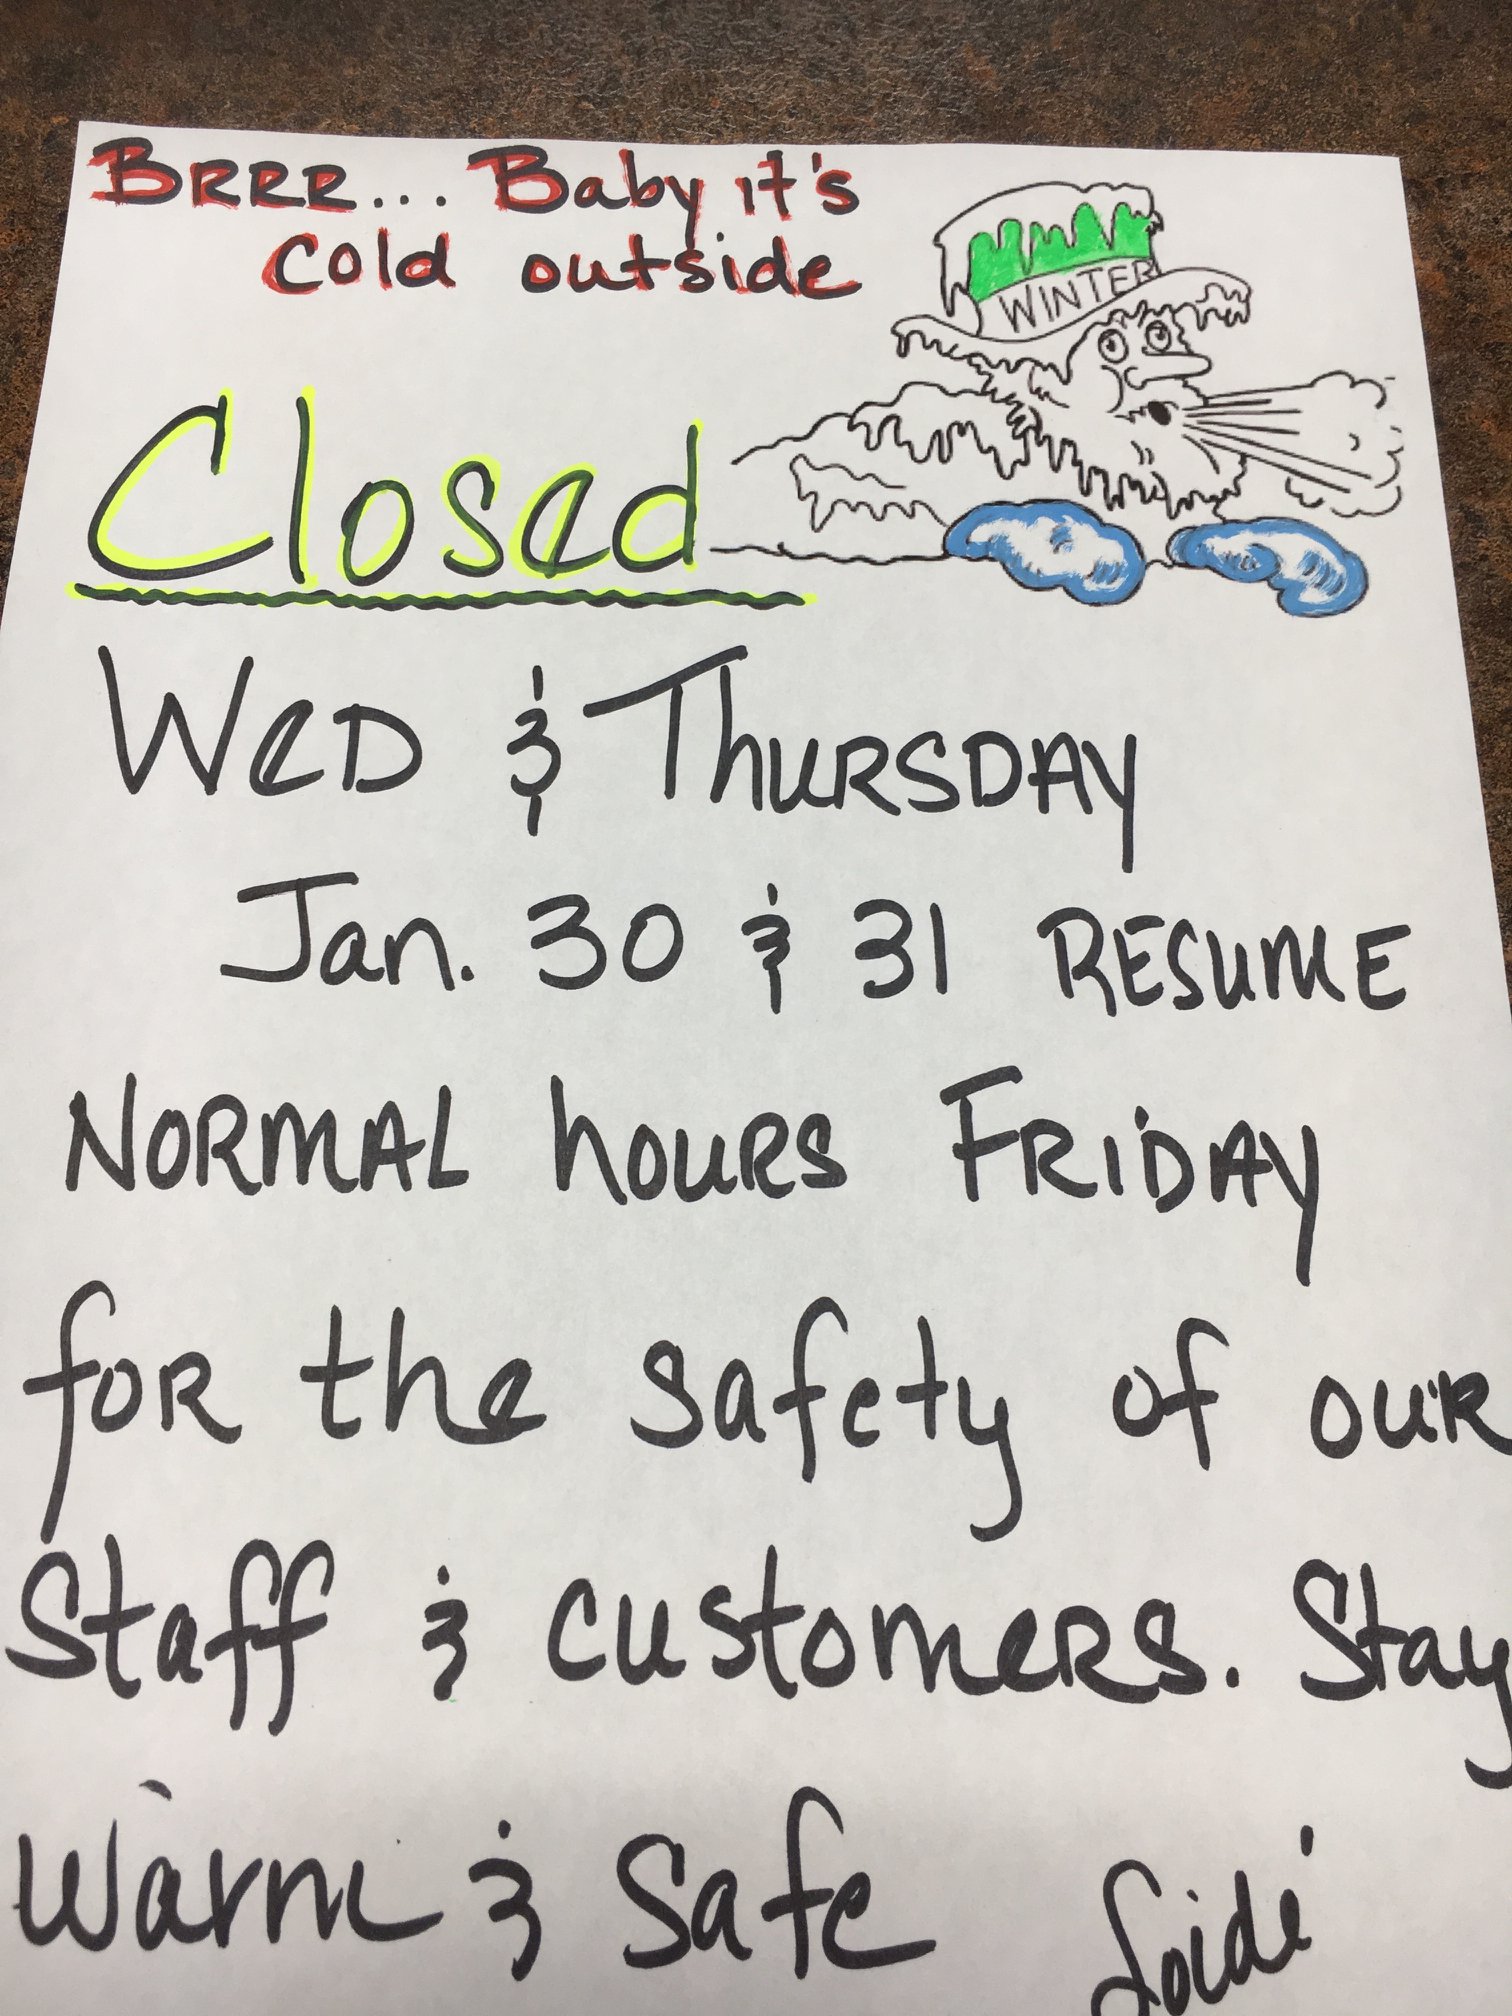 BRRR... Baby it's
cold outside
WINTER
Closed
WED & THURSDAY
Jan. 30 & 31 RESUME
NORMAL hours FRiDAY
for the safety of our
Staff & customers. Stay
Warm & safe